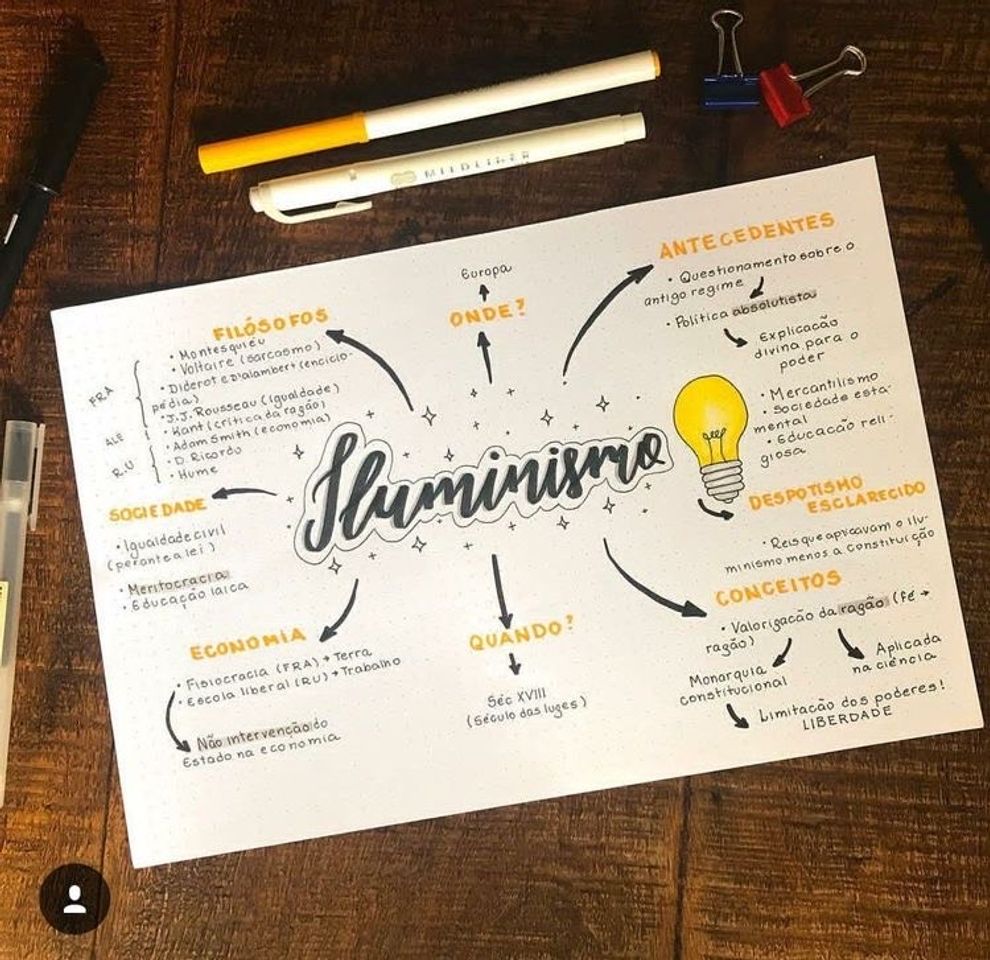 MILDLINER
ANTECEDENTES
• Questionamento sobre o
antigo regime
• Política absolutista
Explicação
divina para o
poder
• Mercantilismo
• Sociedade esta-
mental
• Educação reli-
giosa
Europa
ONDE?
FILÓSOFOS
• Montesquieu
• Voltaire (sarcasmo)
• Diderot e D'alambert (enciclo-
pédia)
• J.J. Rousseau (igualdade)
• Kant (crítica da razão)
• Adam Smith (economia)
• D. Ricardo
• Hume
FRA
ALE
RU
Iluminismo
SOCIEDADE
• Igualdade civil
(perante a lei)
• Meritocracia
• Educação laica
DESPOTISMO
ESCLARECIDO
• Reis que aplicavam o ilu-
minismo menos a constituição
ECONOMIA
• Fisiocracia (FRA) → Terra
• Escola liberal (RU) → Trabalho
Não intervenção do
Estado na economia
QUANDO?
Séc XVIII
(Século das luzes)
CONCEITOS
• Valorização da razão (Fé →
razão)
Monarquia
constitucional
Aplicada
na ciência
Limitação dos poderes!
LIBERDADE